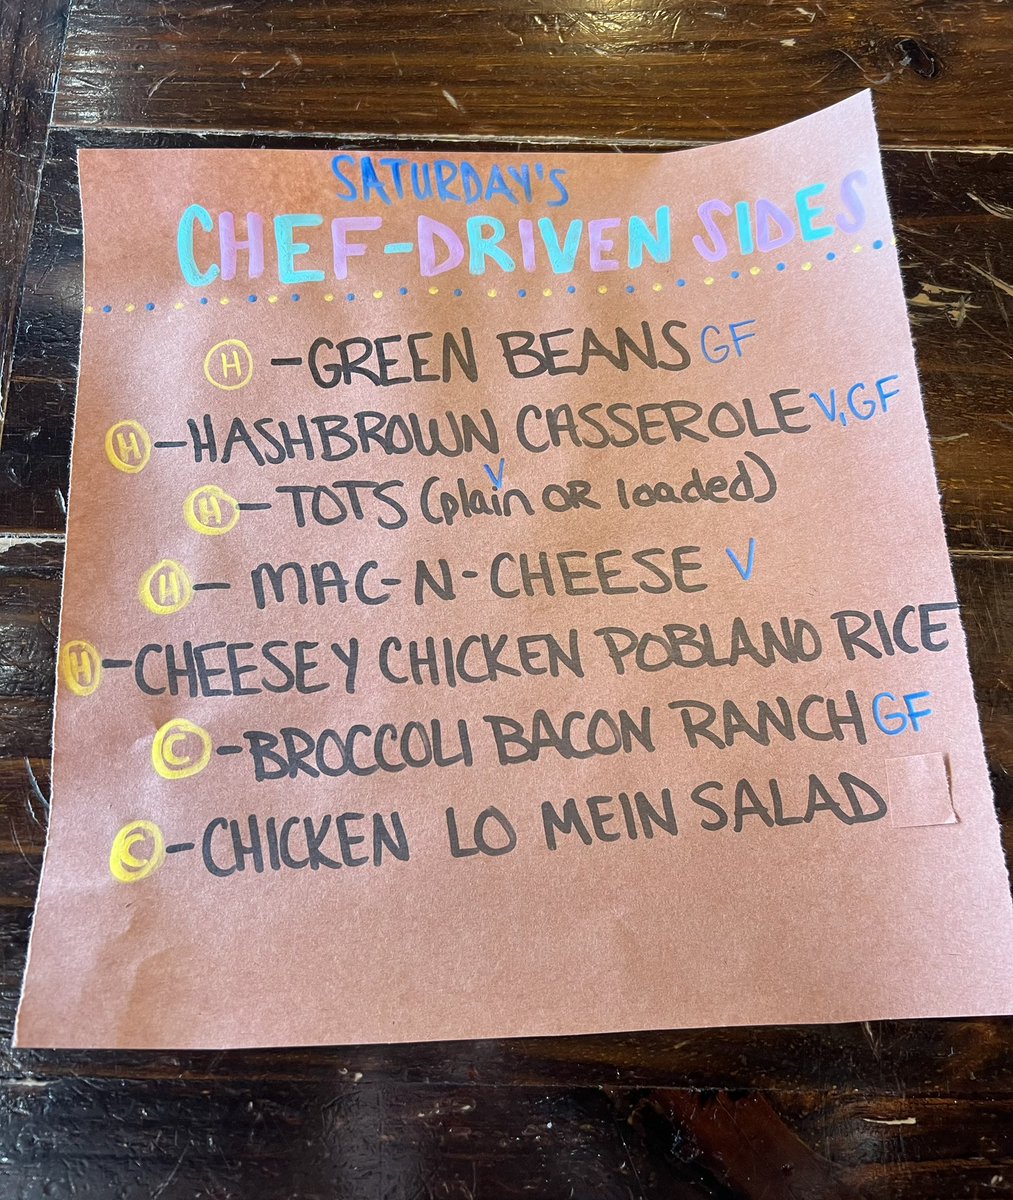 SATURDAY'S
CHEF-DRIVEN SIDES
H -GREEN BEANS GF
H -HASHBROWN CASSEROLE V, GF
H - TOTS (plain V OR loaded)
H - MAC-N-CHEESE V
H -CHEESEY CHICKEN POBLANO RICE
C -BROCCOLI BACON RANCH GF
C -CHICKEN LO MEIN SALAD